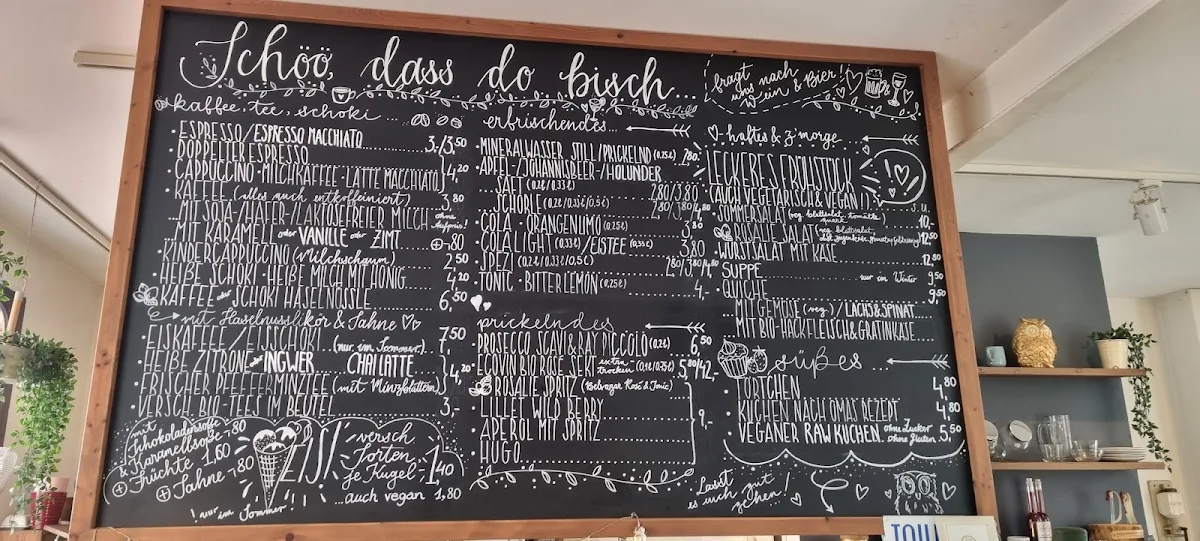 Schöö, dass do bisch...
fragt nach
uns Wein & Bier!
kaffee, tee, schoki...
ESPRESSO/ESPRESSO MACCHIATO 3,-/3,50
DOPPELTER ESPRESSO
CAPPUCCINO·MILCHKAFFEE·LATTE MACCHIATO 4,20
KAFFEE (alles auch entkoffeiniert) 3,80
...MIT SOJA-/HAFER-/LAKTOSEFREIER MILCH ohne Aufpreis!
...MIT KARAMELL oder VANILLE oder ZIMT +-80
KINDERCAPPUCCINO (Milchschaum) 2,50
HEIßE SCHOKI·HEIßE MILCH MIT HONIG 4,20
KAFFEE oder SCHOKI HASELNÜSSLE 6,50
mit Haselnusslikör & Sahne
EISKAFFEE/EISSCHOKI (nur im Sommer) 7,50
HEIßE ZITRONE INGWER CHAI LATTE
FRISCHER PFEFFERMINZTEE (mit Minzblättern) 4,20
VERSCH. BIO-TEES IM BEUTEL 3,-
mit
Schokoladensoße -80
& Karamellsoße -80
+ Früchte 1,60
+ Sahne -80
! nur im Sommer!
EIS!
versch.
Sorten
je Kugel 1,40
...auch vegan 1,80
erfrischendes...
MINERALWASSER STILL/PRICKELND (0,75l) 7,80
APFEL-/JOHANNISBEER-/HOLUNDER
...SAFT (0,2l/0,33l) 2,80/3,80
...SCHORLE (0,2l/0,33l/0,5l) 2,80/3,80/4,80
COLA·ORANGENLIMO (0,25l) 3,80
COLA LIGHT (0,33l)/EISTEE (0,33l) 3,80
SPEZI (0,2l/0,33l/0,5l) 2,80/3,80/4,80
TONIC·BITTER LEMON (0,25l) 4,-
prickelndes
PROSECCO SCAVI & RAY PICCOLO (0,2l) 6,50
ECOVIN BIO ROSÉ SEKT extra trocken
ROSALIE SPRITZ (Belvoyar Rosé & Tonic)
LILLET WILD BERRY
APEROL MIT SPRITZ 9,-
HUGO
♡-haftes & z'morge...
LECKERES FRÜHSTÜCK
(AUCH VEGETARISCH & VEGAN!) s.u.
SOMMERSALAT 10,-
ROSALIE-SALAT 12,50
WURSTSALAT MIT KÄSE 12,80
SUPPE nur im Winter 9,50
QUICHE 9,50
...MIT GEMÜSE (veg.)/LACHS & SPINAT
...MIT BIO-HACKFLEISCH & GRATINKÄSE
süßes...
TÖRTCHEN 4,80
KUCHEN NACH OMAS REZEPT 4,80
VEGANER RAW KUCHEN ohne Zucker ohne Gluten 5,50
Lasst
es euch gut
gehen!